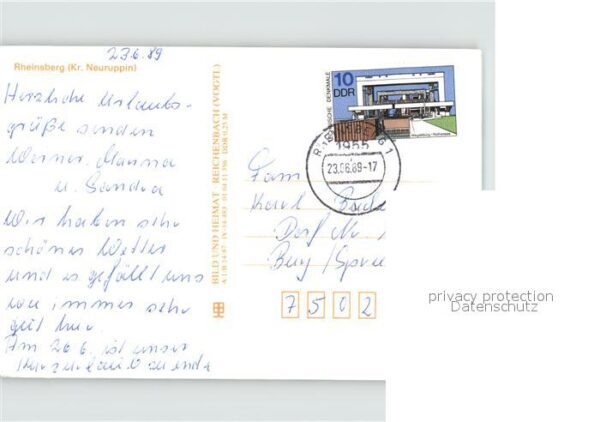 23.6.89
Rheinsberg (Kr. Neuruppin)
Herzliche Urlaubs-
grüße senden
Werner, Hanna
u. Sandra
Wir haben sehr
schönes Wetter
und es gefällt uns
wie immer sehr
gut hier.
Am 26.6. ist unser
zu ende
BILD UND HEIMAT REICHENBACH (VOGTL)
10
DDR
DENKMALE
1955
23.06.89-17
Fam
Karl
Dorf Nr
Burg/Spree
7502
privacy protection
Datenschutz